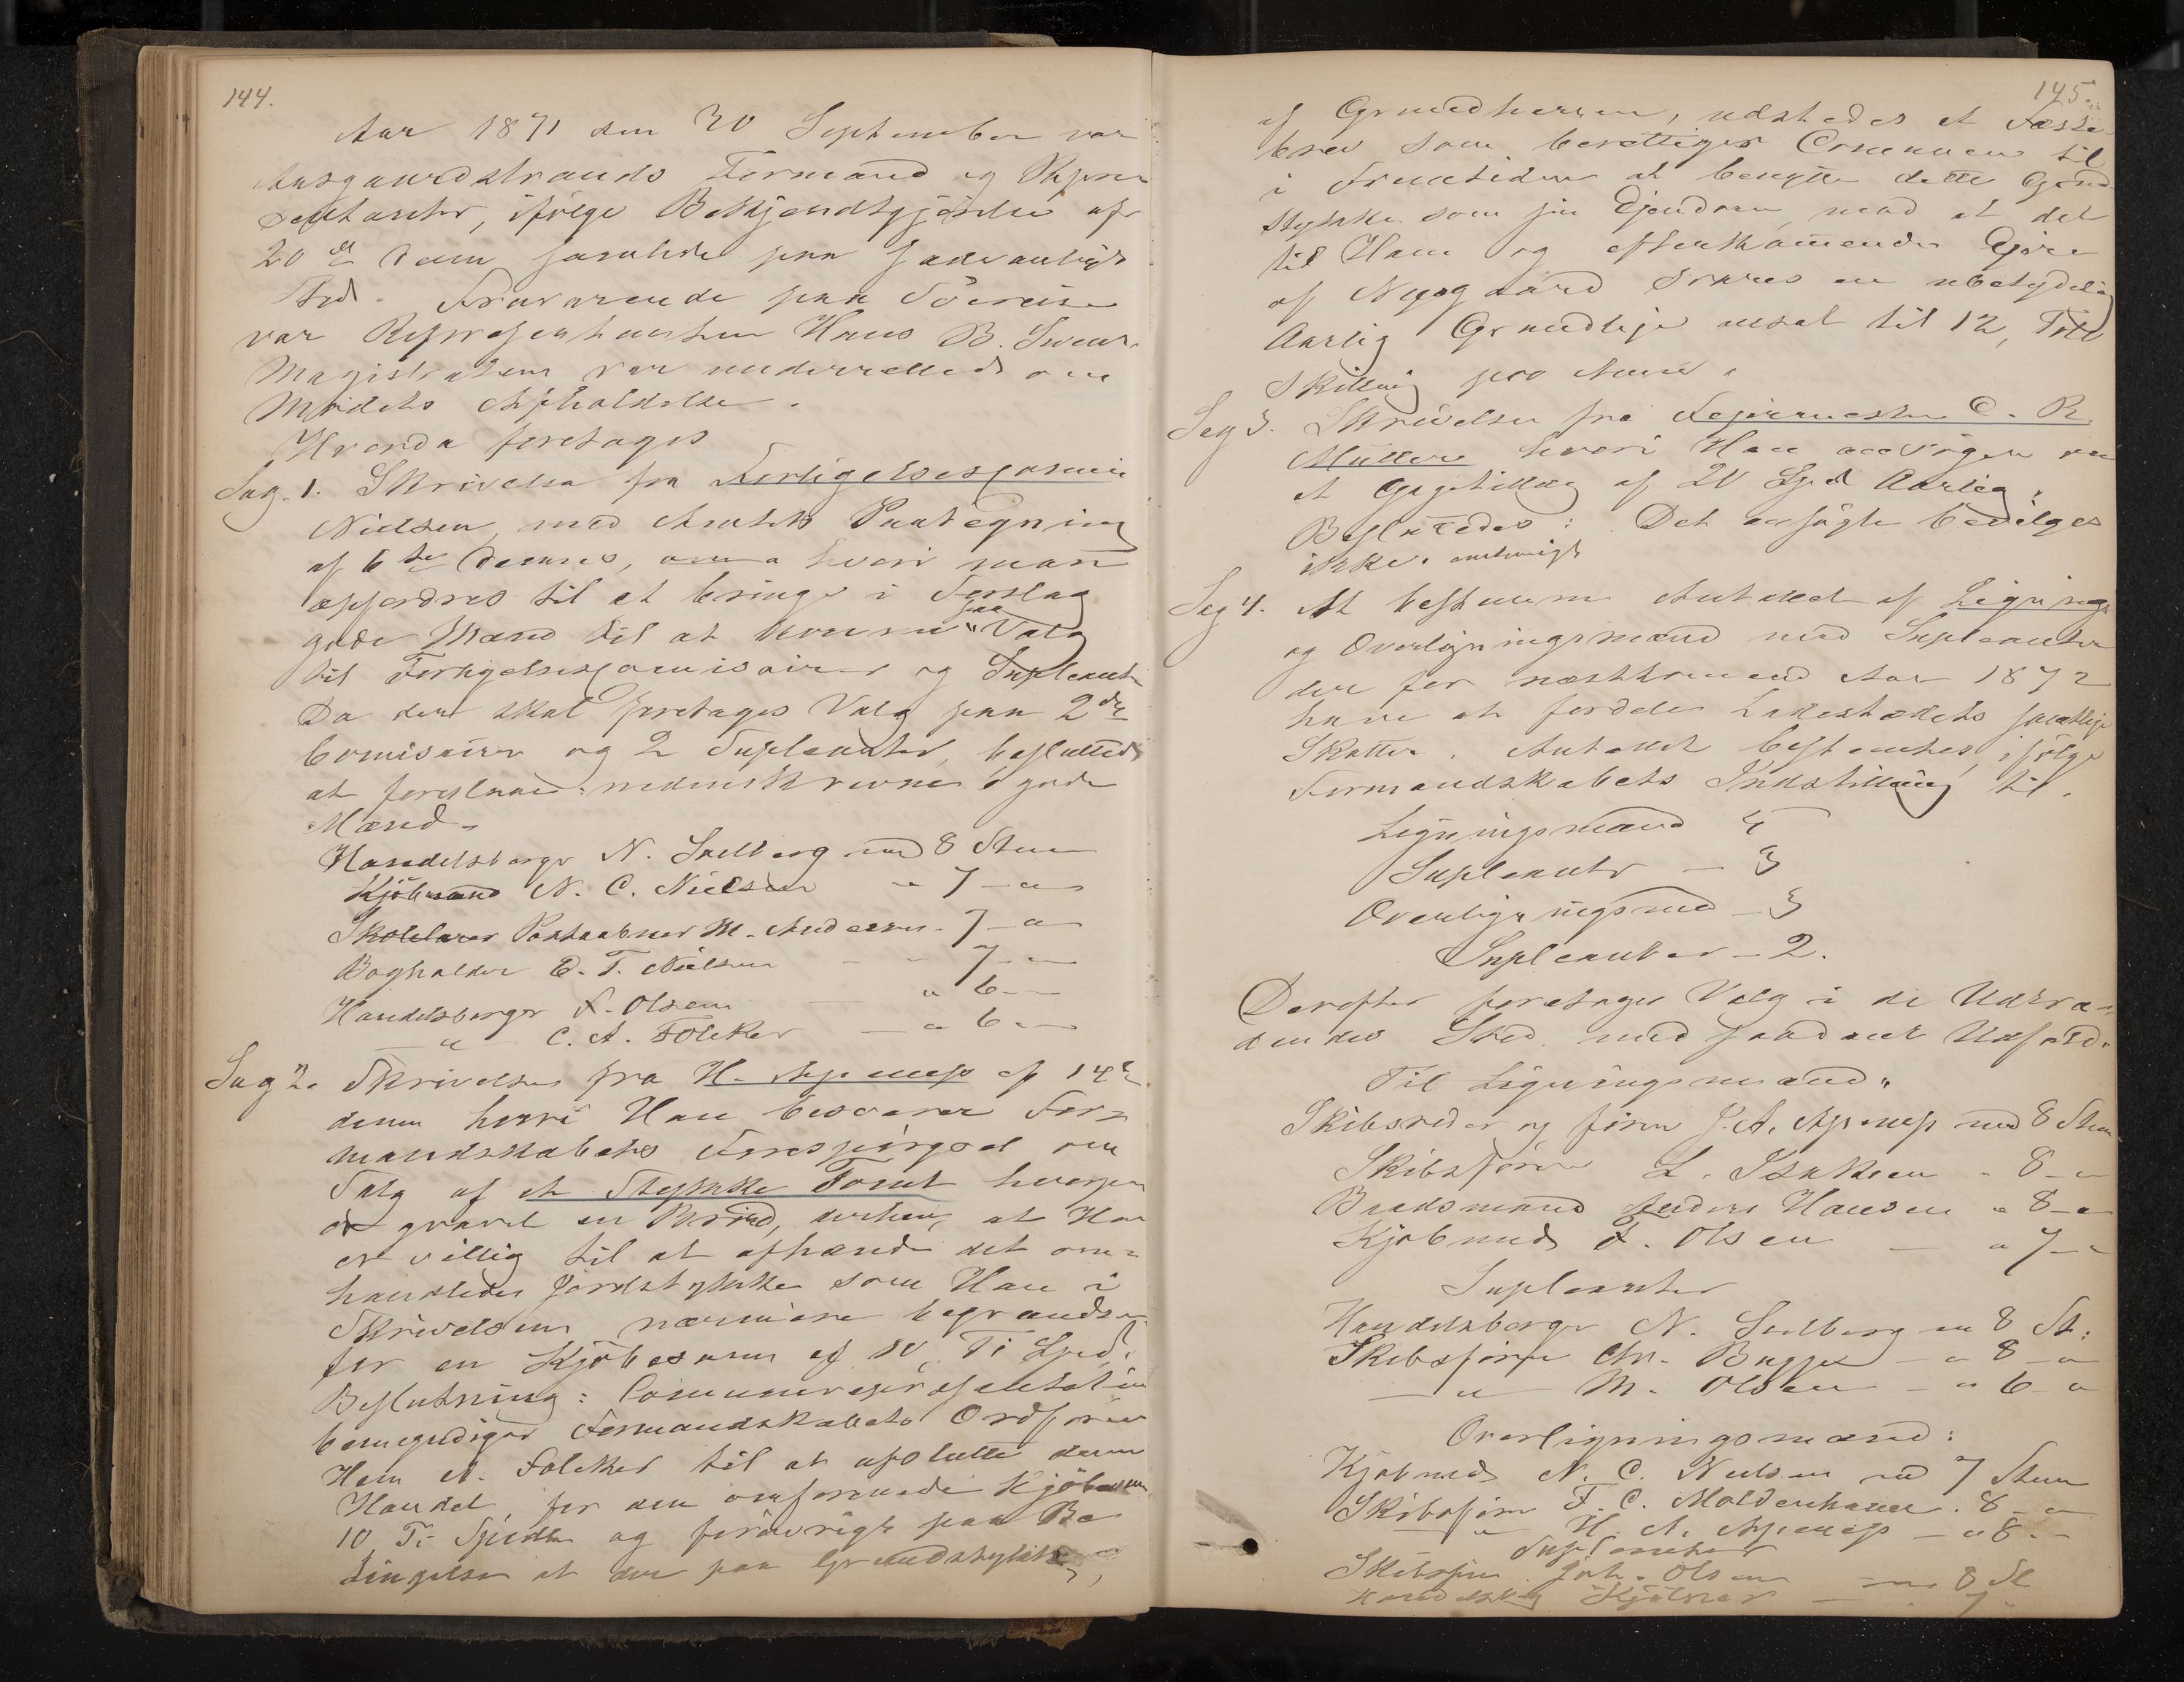 144.
Aar 1871 den 30 September var
Aasgaardstrands Formænd og Repræ-
sentanter, ifølge Bekjendtgjørelse af
20de dem samlede paa sædvanligt
Sted. Fraværende paa Søreise
var Representanten Hans B.
Magistraten var underrettet om
Mødets Afholdelse.
Hvorda foretoges
Sag. 1. Skrivelse fra Forligelsescommis
Nielsen, med Amtets Paategning
af 6te dennes, hvori man
opfordres til at bringe i Forslag
gode Mænd til at komme paa Valg
til Forligelsescomisairer og Supleanter
Da der skal foretages Valg paa 2de
Comisairer og 2 Supleanter, besluttedes
at foreslaaes nedenskrevne 6 gode
Mænd.
Handelsborger N. Sselberg med 8 Stem
Kjöbmand N. C. Nielsen - " 7 - "
Skolelærer Postaabner M. Andersen - 7 - "
Bogholder E. T. Nielsen - - 7 - "
Handelsborger F. Olsen - " 6 -
- " - C. A. Foleker - " 6 " -
Sag 2. Skrivelse fra H. Apenæs af 14de
dennes hvori Han besvarer For-
mandskabets Forespørgsel om
Salg af et Stykke Tomt hvorpaa
er gravet en Brønd, derhen, at Han
er villig til at afhænde det om-
handlede Jordstykke som Han i
Skrivelsen nærmere begrændser
for en Kjøbesum af 10, Ti Spd.
Beslutning: Communerepresentationen
bemyndiger Formandskabets Ordfører
Herr A. Foleker til at afslutte denne
Handel, for den omforenede Kjøbesum
10 Ti Spdlr og forøvrigt paa Be
tingelse at der paa Grundstykket,
145.
af Grundherren, udstedes et Fæste
brev som berettiger Comunen til
i Fremtiden at benytte dette Grund
stykke som sin Ejendom, mod at det
til Ham og efterkommende Ejere
af Nygaard svares en ubetydelig
Aarlig Grundleje ansat til 12, Tolv
Skilling pro Anno.
Sag 3. Skrivelse fra Fejermester C. R.
Müller hvori Han ansøger om
et Gagetillæg af 20 Spd Aarlig.
Besluttedes: Det ansøgte bevilges
ikke. enstemigt
Sag 4. At bestemme Antallet af Lignings
og Overligningsmænd med Supleanter
der for næstkommende Aar 1872
have at fordele Ladestedets samtlige
Skatter. Antallet bestemtes, ifølge
Formandskabets Indstilling til.
Ligningsmænd 4
Supleanter - 3
Overligningsmænd - 3
Supleanter - 2.
Derefter foretages Valg i de Udtræ-
dendes Sted med saadant Udfald.
Til Ligningsmænd.
Skibsreder og fører J. A. Apenæs med 8 Stem
Skibsfører L. Isaksen - 8 - "
Brødsmand Anders Hansen " 8 - "
Kjøbmand F. Olsen - " 7 - "
Supleanter
Handelsborger N. Sselberg m 8 St:
Skibsfører Chr. Bugge - " 8 - "
- " - M. Olsen - " 6 - "
Overligningsmænd:
Kjøbmand N. C. Nielsen med 7 Stem
Skibsfører F. C. Moldenhauer . 8 - "
- " H. A. Apenæs - " 8 " -
Supleanter
Skibsfører Joh. Olsen - " 8 St
Handelsborg Hjölner - " 7 "